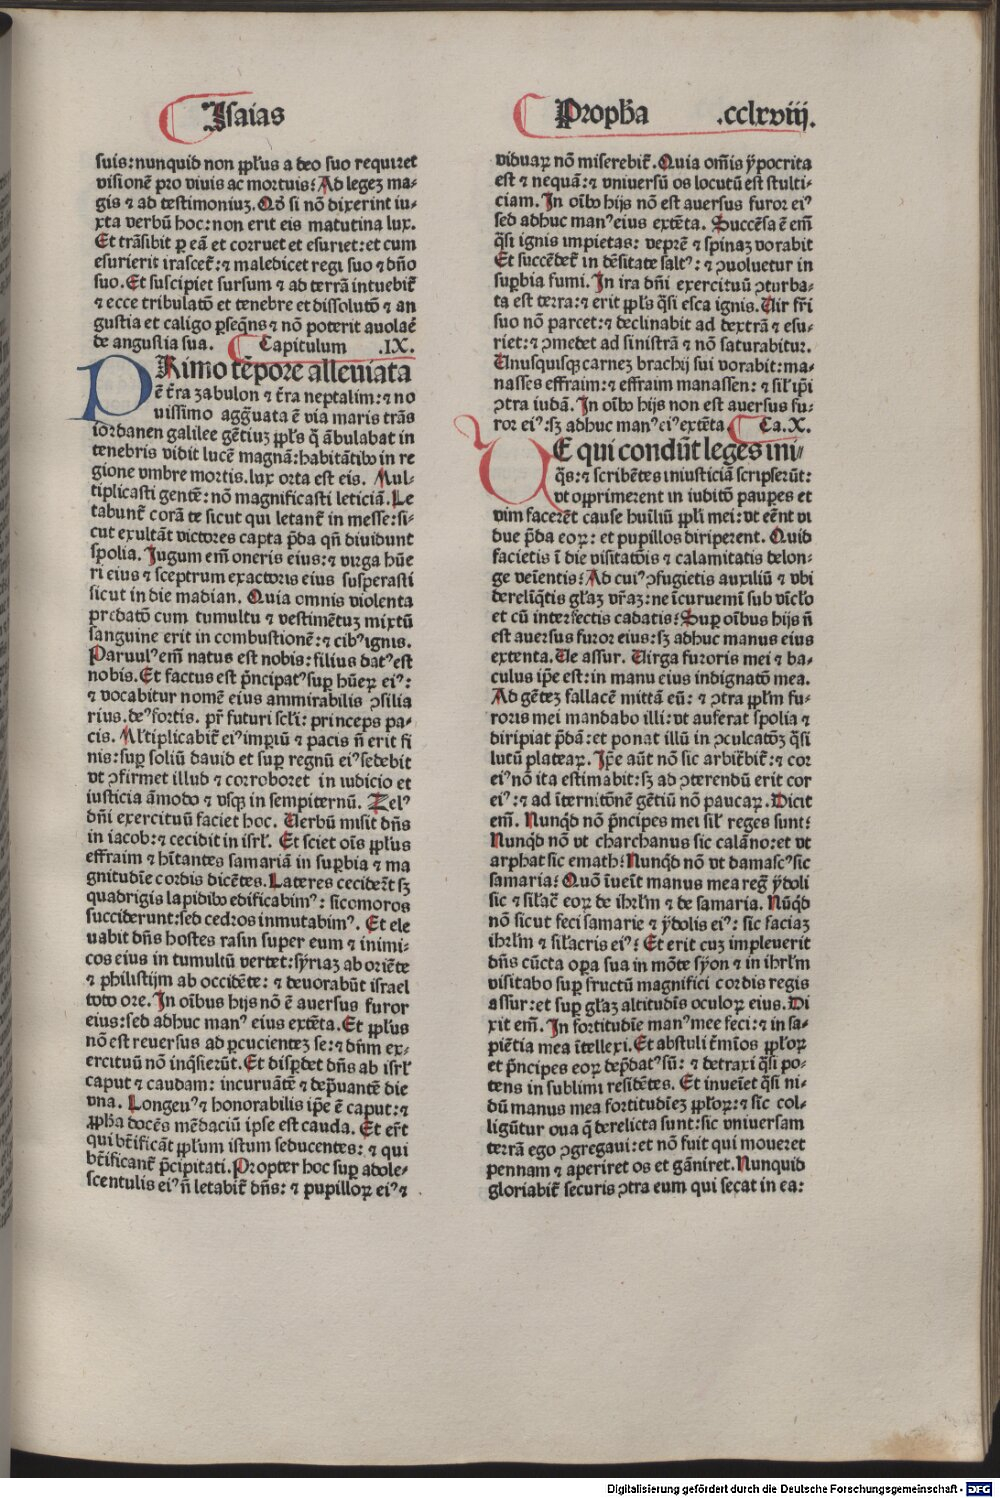 Isaias
Propħa .cclxviij.
suis:nunquid non ꝓpl'us a deo suo requiret
visionē pro viuis ac mortuis? Ad legeʒ ma⸗
gis ⁊ ad testimoniuʒ. Qđ si nō dixerint iu⸗
xta verbū hoc: non erit eis matutina lux.
Et trāsibit ꝑ eā et corruet et esuriet: et cum
esurierit irascet̃: ⁊ maledicet regi suo ⁊ dño
suo. Et suscipiet sursum ⁊ ad terrā intuebit̃
⁊ ecce tribulatō et tenebre et dissolutō ⁊ an
gustia et caligo ꝑseq̄ns ⁊ nō poterit auolaē
de angustia sua. Capitulum .IX.
PRimo tēpore alleuiata
ē t̃ra zabulon ⁊ t̃ra neptalim: ⁊ no
uissimo aggᷓuata ē via maris trās
iordanen galilee gētiuʒ ꝓpl's q̄ ābulabat in
tenebris vidit lucē magnā: habitātibꝰ in re
gione vmbre mortis. lux orta est eis. Mul⸗
tiplicasti gentē: nō magnificasti leticiā. Le
tabunt̃ corā te sicut qui letant̃ in messe: si⸗
cut exultāt victores capta p̄da qñ diuidunt
spolia. Iugum em̄ oneris eius: ⁊ virga hūe
ri eius ⁊ sceptrum exactoris eius susperasti
sicut in die madian. Quia omnis violenta
predatō cum tumultu ⁊ vestimētuʒ mixtū
sanguine erit in combustionē: ⁊ cibꝰ ignis.
Paruulꝰ em̄ natus est nobis: filius datꝰ est
nobis. Et factus est p̄ncipatꝰ suꝑ hūeꝝ eiꝰ:
⁊ vocabitur nomē eius ammirabilis ꝯsilia
rius. deꝰ fortis. pr̄ futuri scl'i: princeps pa⸗
cis. Ml'tiplicabit̃ eiꝰ imꝑiū ⁊ pacis ñ erit fi
nis: suꝑ soliū dauid et suꝑ regnū eiꝰ sedebit
vt ꝯfirmet illud ⁊ corroboret in iudicio et
iusticia āmodo ⁊ vsqꝫ in sempiternū. Zelꝰ
dñi exercituū faciet hoc. Uerbū misit dñs
in iacob: ⁊ cecidit in isrł. Et sciet oīs ꝓpl'us
effraim ⁊ hītantes samariā in suꝑbia ⁊ ma
gnitudīe cordis dicētes. Lateres ceciderūt sʒ
quadrigis lapidibꝰ edificabimꝰ: sicomoros
succiderunt: sed cedros inmutabimꝰ. Et ele
uabit dñs hostes rasin super eum ⁊ inimi⸗
cos eius in tumultū vertet: sẏriaʒ ab oriēte
⁊ philistijm ab occidēte: ⁊ deuorabūt israel
toto ore. In oībus hijs nō ē auersus furor
eius: sed adhuc manꝰ eius extēta. Et ꝓpl'us
nō est reuersus ad ꝑcucienteʒ se: ⁊ dñm ex⸗
ercituū nō inq̇sierūt. Et disꝑdet dñs ab isrł
caput ⁊ caudam: incuruātē ⁊ dep̄uantē die
vna. Longeuꝰ ⁊ honorabilis ip̄e ē caput: ⁊
ꝓpħa docēs mēdaciū ipse est cauda. Et er̄t
qui bt̄ificāt ꝓpl'um istum seducentes: ⁊ qui
bt̄ificant̃ p̄cipitati. Propter hoc suꝑ adole⸗
scentulis eiꝰ ñ letabit̃ dñs: ⁊ pupilloꝝ eiꝰ ⁊
viduaꝝ nō miserebit̃. Quia om̄is ẏpocrita
est ⁊ nequā: ⁊ vniuersū os locutū est stulti⸗
ciam. In oībꝰ hijs nō est auersus furor eiꝰ
sed adhuc manꝰ eius extēta. Succēsa ē em̄
q̄si ignis impietas: veprē ⁊ spinaʒ vorabit
Et succēdet̃ in dēsitate saltꝰ: ⁊ ꝯuoluetur in
suꝑbia fumi. In ira dñi exercituū ꝯturba⸗
ta est terra: ⁊ erit ꝓpl's q̄si esca ignis. Uir fr̄i
suo nō parcet: ⁊ declinabit ad dextrā ⁊ esu⸗
riet: ⁊ ꝯmedet ad sinistrā ⁊ nō saturabitur.
Unusquisqꝫ carneʒ brachij sui vorabit: ma⸗
nasses effraim: ⁊ effraim manassen: ⁊ sil' ip̄i
ꝯtra iudā. In oībꝰ hijs non est auersus fu⸗
ror eiꝰ: sʒ adhuc manꝰ eiꝰ extēta. Ca.X.
UE qui condūt leges ini⸗
q̄s: ⁊ scribētes iniusticiā scripserūt:
vt opprimerent in iuditō pauꝑes et
vim facerēt cause huīliū ꝓpl'i mei: vt eēnt vi
due p̄da eoꝝ: et pupillos diriperent. Quid
facietis ī die visitatōis ⁊ calamitatis delon⸗
ge veīentis? Ad cuiꝰ ꝯfugietis auxiliū ⁊ vbi
derelīq̄tis gl'aʒ vr̄aʒ: ne īcuruemī sub vīcl'o
et cū interfectis cadatis? Suꝑ oībus hijs ñ
est auersus furor eius: sʒ adhuc manus eius
extenta. Ue assur. Uirga furoris mei ⁊ ba⸗
culus ip̄e est: in manu eius indignatō mea.
Ad gēteʒ fallacē mittā eū: ⁊ ꝯtra ꝓpl'm fu⸗
roris mei mandabo illi: vt auferat spolia ⁊
diripiat p̄dā: et ponat illū in ꝯculcatōʒ q̄si
lutū plateaꝝ. Ip̄e aūt nō sic arbit̃bit̃: ⁊ cor
eiꝰ nō ita estimabit: sʒ ad ꝯterendū erit cor
eiꝰ: ⁊ ad īternitōnē gētiū nō paucaꝝ. Dicit
em̄. Nunq̇d nō p̄ncipes mei sil' reges sunt?
Nunq̇d nō vt charchanus sic calāno: et vt
arphat sic emath? Nunq̇d nō vt damascꝰ sic
samaria? Quō īueīt manus mea regᷓ ẏdoli
sic ⁊ sil'acᷓ eoꝝ de ihrl'm ⁊ de samaria. Nūq̇d
nō sicut feci samarie ⁊ ẏdolis eiꝰ: sic faciaʒ
ihrl'm ⁊ sil'acris eiꝰ? Et erit cuʒ impleuerit
dñs cūcta oꝑa sua in mōte sẏon ⁊ in ihrl'm
visitabo suꝑ fructū magnifici cordis regis
assur: et suꝑ gl'aʒ altitudīs oculoꝝ eius. Di
xit em̄. In fortitudīe manꝰ mee feci: ⁊ in sa⸗
piētia mea ītellexi. Et abstuli t̄mīos ꝓpl'oꝝ
et p̄ncipes eoꝝ dep̄datꝰ sū: ⁊ detraxi q̄si po⸗
tens in sublimi residētes. Et inueīet q̄si ni⸗
dū manus mea fortitudīeʒ ꝓpl'oꝝ: ⁊ sic col⸗
ligūtur oua q̄ derelicta sunt: sic vniuersam
terrā ego ꝯgregaui: et nō fuit qui moueret
pennam ⁊ aperiret os et gāniret. Nunquid
gloriabit̃ securis ꝯtra eum qui secat in ea:
Digitalisierung gefördert durch die Deutsche Forschungsgemeinschaft - DFG